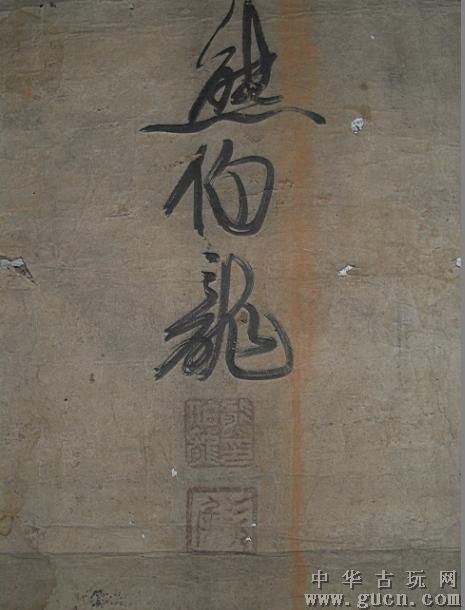 熊伯龍
中华古玩网
www.gucn.com